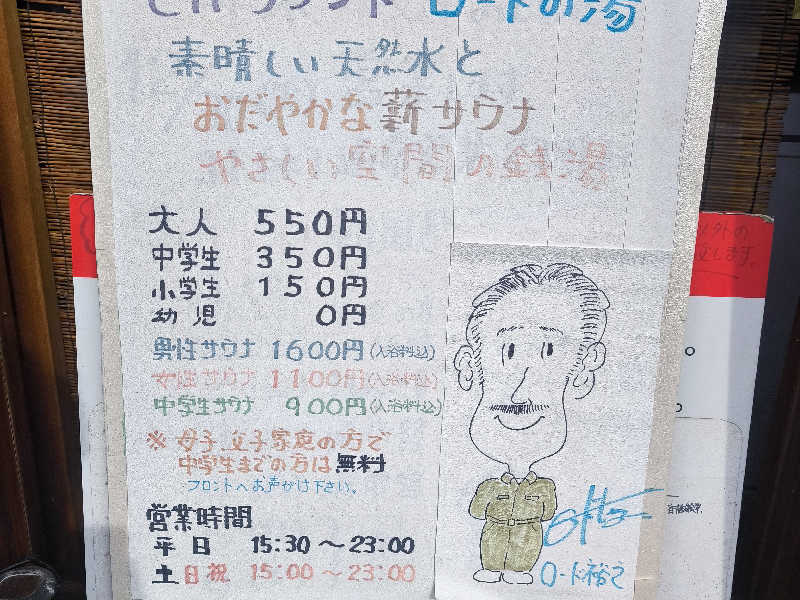 ロードの湯
素晴しい天然水と
おだやかな薪サウナ
やさしい空間の銭湯
大人 550円
中学生 350円
小学生 150円
幼児 0円
男性サウナ 1600円(入浴料込)
女性サウナ 1100円(入浴料込)
中学生サウナ 900円(入浴料込)
※ 母子、父子家庭の方で
中学生までの方は無料
フロントへお声がけ下さい。
営業時間
平日 15:30～23:00
土日祝 15:00～23:00
ロード裕之
外の
します。